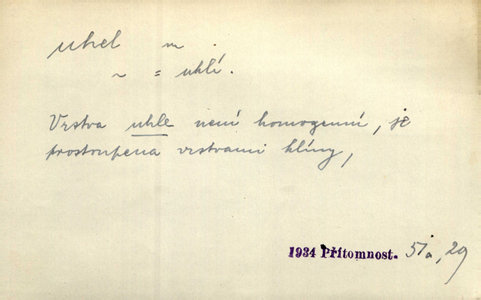 uhel m.
~ = uhlí.
Vrstva uhle není homogenní, je
prostoupena vrstvami hlíny,
1934 Přítomnost. 51a, 29